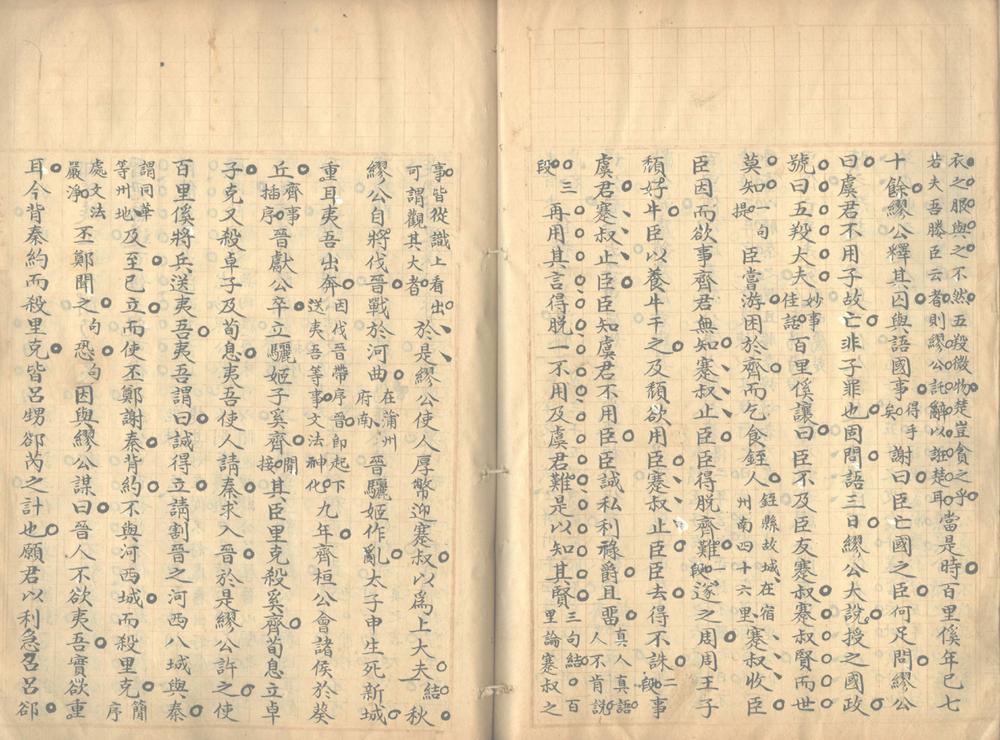 衣之服與之不然五羖微物楚豈貪之乎
若夫吾勝臣云者則繆公託辭以誑楚耳
當是時百里傒年已七
十餘繆公釋其囚與語國事
得手
矣
謝曰臣亡國之臣何足問繆公
曰虞君不用子故亡非子罪也固問語三日繆公大說授之國政
號曰五羖大夫
妙事
佳話
百里傒讓曰臣不及臣友蹇叔蹇叔賢而世
莫知
一句
提
臣嘗游困於齊而乞食銍人
銍縣故城在宿
州南四十六里
蹇叔收臣
臣因而欲事齊君無知蹇叔止臣臣得脫齊難
一
段
遂之周周王子
頹好牛臣以養牛干之及頹欲用臣蹇叔止臣臣去得不誅
二
段
事
虞君蹇叔止臣臣知虞君不用臣臣誠私利祿爵且畱
真人真語
人不肯說
三
段
再用其言得脫一不用及虞君難是以知其賢
三句結百
里論蹇叔之
事皆從識上看出
可謂觀其大者
於是繆公使人厚幣迎蹇叔以爲上大夫
結
秋
繆公自將伐晉戰於河曲
在蒲州
府南
晉驪姬作亂太子申生死新城
重耳夷吾出奔
因伐晉帶序晉即起下
送夷吾等事文法神化
九年齊桓公會諸侯於葵
丘
齊事
插序
晉獻公卒立驪姬子奚齊
閒
接
其臣里克殺奚齊荀息立卓
子克又殺卓子及荀息夷吾使人請秦求入晉於是繆公許之使
百里傒將兵送夷吾夷吾謂曰誠得立請割晉之河西八城與秦
謂同華
等州地
及至已立而使丕鄭謝秦背約不與河西城而殺里克
簡
序
處文法
嚴淨
丕鄭聞之
句
恐
句
因與繆公謀曰晉人不欲夷吾實欲重
耳今背秦約而殺里克皆呂甥郤芮之計也願君以利急召呂郤